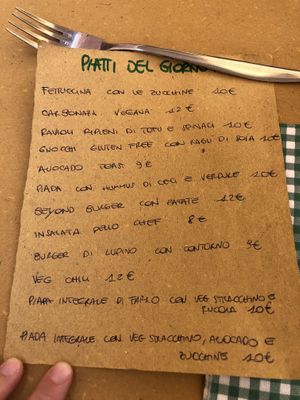 PIATTI DEL GIORNO
FETTUCCINA CON LE ZUCCHINE 10€
CARBONARA VEGANA 12€
RAVIOLI RIPIENI DI TOFU E SPINACI 10€
GNOCCHI GLUTEN FREE CON RAGÙ DI SOIA 10€
AVOCADO TOAST 9€
PIADA CON HUMMUS DI CECI E VERDURE 10€
BEYOND BURGER CON PATATE 12€
INSALATA DELLO CHEF 8€
BURGER DI LUPINO CON CONTORNO 9€
VEG CHILI 12€
PIADA INTEGRALE DI CON VEG STRACCHINO E
RUCOLA 10€
PIADA INTEGRALE CON VEG STRACCHINO, AVOCADO E
ZUCCHINE 10€